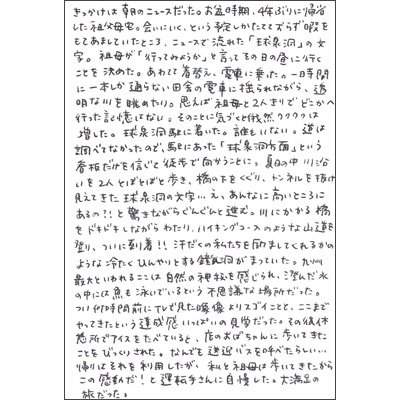 きっかけは朝のニュースだった。お盆時期、4年ぶりに帰省
した祖父母宅。会いにいく、という予定しかたてておらず暇を
もてあましていたところ、ニュースで流れた「球泉洞」の文
字。祖母が「行ってみようか」と言ってその日の昼に行く
ことを決めた。あわてて着替え、電車に乗った。一時間
に一本しか通らない田舎の電車に揺られながら、透
明な川を眺めたり。思えば祖母と2人きりでどこかへ
行った記憶はない。そのことに気づくと俄然ワクワクは
増した。球泉洞駅に着いた。誰もいない。道は
調べてなかったので、駅にあった「球泉洞方面」という
看板だけを信じて徒歩で向かうことに。真日の中川沿
いを2人とぼとぼと歩き、橋の下をくぐり、トンネルを抜け
見えてきた球泉洞の文字…え、あんなに高いところに
あるの?!と驚きながらぐんぐんと進む。川にかかる橋
をドキドキしながらわたり、ハイキングコースのような山道を
登り、ついに到着!!汗だくの私たちを励ましてくれるかの
ような冷たくひんやりとする鍾乳洞がまっていた。九州
最大といわれるここは自然の神秘を感じられ、澄んだ水
の中には魚も泳いでいるという不思議な場所だった。
つい何時間前にTVで見た映像よりスゴイことと、ここまで
やってきたという達成感いっぱいの見学だった。その後休
憩所でアイスをたべていると、店のおばちゃんに歩いてきた
ことをびっくりされた。なんでも送迎バスを呼べたらしい…
帰りはそれを利用したが、私と祖母は歩いてきたから
この感動だ!と運転手さんに自慢した。大満足の
旅だった。